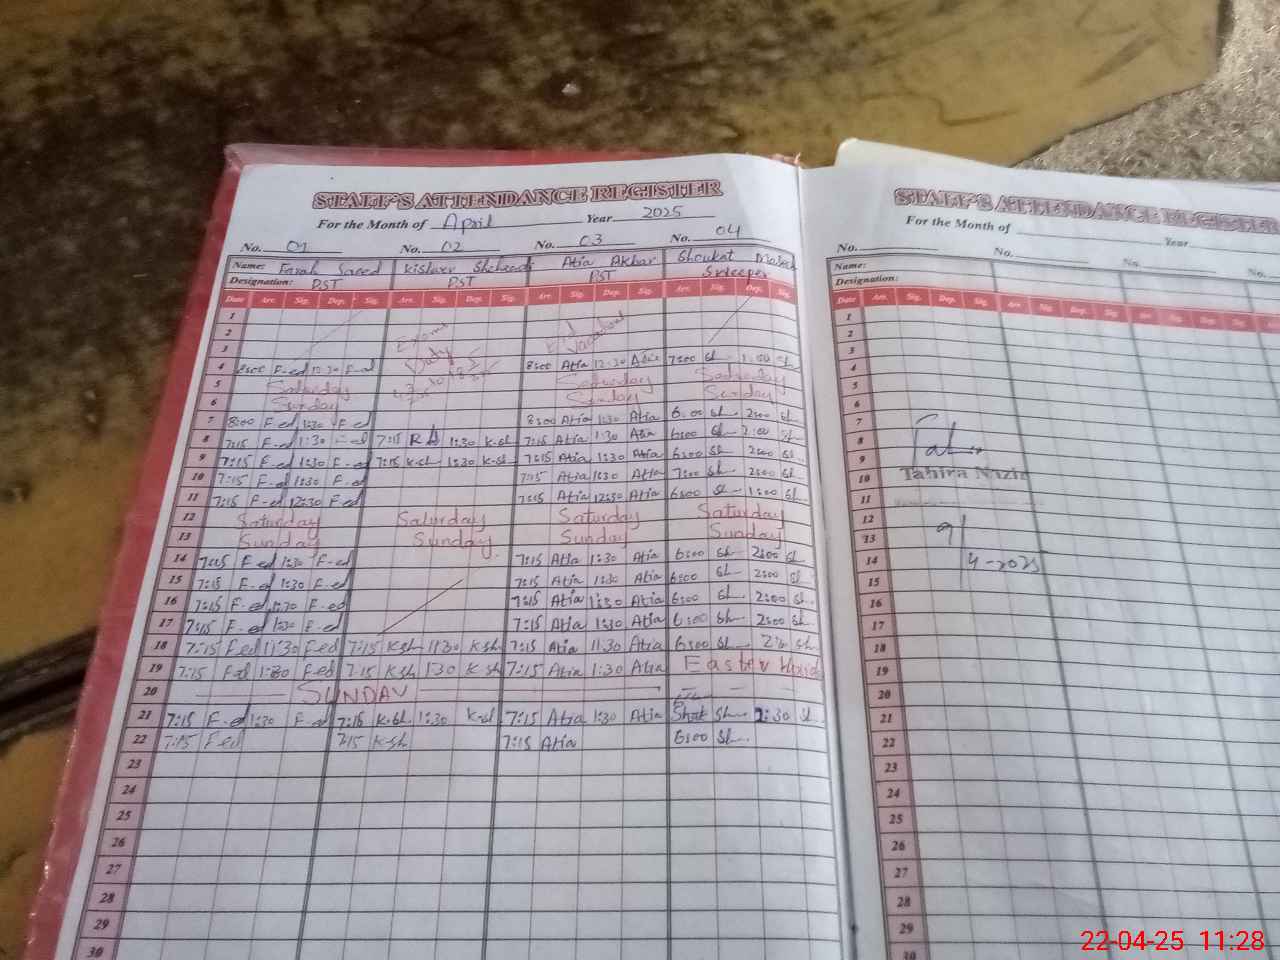 STAFF'S ATTENDANCE REGISTER
For the Month of April Year 2025
No. 01 No. 02 No. 03 No. 04
Name: Farah Saeed Atia Akhar Shoukat
Designation: PST PST PST Sweeper
Date Arr. Sig. Dep. Sig. Arr. Sig. Dep. Sig. Arr. Sig. Dep. Sig. Arr. Sig. Dep. Sig.
1
2 Exams
3 Duty Vacations
4 8:00 F-ed 12:30 F-ed 8:00 Atia 12:30 Atia 7:00 Sh 1:00 Sh
5 Saturday Saturday Saturday
6 Sunday Sunday Sunday
7 8:00 F-ed 1:30 F-ed 8:00 Atia 1:30 Atia 6:00 Sh 2:00 Sh
8 7:15 F-ed 1:30 F-ed 7:15 1:30 K-sh 7:15 Atia 1:30 Atia 6:00 Sh 2:00 Sh
9 7:15 F-ed 1:30 F-ed 7:15 K-sh 1:30 K-sh 7:15 Atia 1:30 Atia 6:00 Sh 2:00 Sh
10 7:15 F-ed 1:30 F-ed 7:15 Atia 1:30 Atia 7:00 Sh 2:00 Sh
11 7:15 F-ed 12:30 F-ed 7:15 Atia 12:30 Atia 6:00 Sh 1:00 Sh
12 Saturday Saturday Saturday Saturday
13 Sunday Sunday Sunday Sunday
14 7:15 F-ed 1:30 F-ed 7:15 Atia 1:30 Atia 6:00 Sh 2:00 Sh
15 7:15 F-ed 1:30 F-ed 7:15 Atia 1:30 Atia 6:00 Sh 2:00 Sh
16 7:15 F-ed 1:30 F-ed 7:15 Atia 1:30 Atia 6:00 Sh 2:00 Sh
17 7:15 F-ed 1:30 F-ed 7:15 Atia 1:30 Atia 6:00 Sh 2:00 Sh
18 7:15 F-ed 11:30 F-ed 7:15 K-sh 11:30 K-sh 7:15 Atia 11:30 Atia 6:00 Sh Sh
19 7:15 F-ed 1:30 F-ed 7:15 K-sh 1:30 K-sh 7:15 Atia 1:30 Atia Easter
20 SUNDAY
21 7:15 F-ed 1:30 F-ed 7:15 K-sh 1:30 K-sh 7:15 Atia 1:30 Atia Sh Sh
22 7:15 F-ed 7:15 K-sh 7:15 Atia 6:00 Sh
23
24
25
26
27
28
29
30
STAFF'S ATTENDANCE REGISTER
For the Month of Year
No. No. No. No.
Name:
Designation:
Date Arr. Sig. Dep. Sig. Arr. Sig. Dep. Sig. Arr. Sig. Dep. Sig.
1
2
3
4
5
6
7
8
9
10 Tahira Nazir
11
12
13 9/
14 4-2025
15
16
17
18
19
20
21
22
23
24
25
26
27
28
29
30
22-04-25 11:28